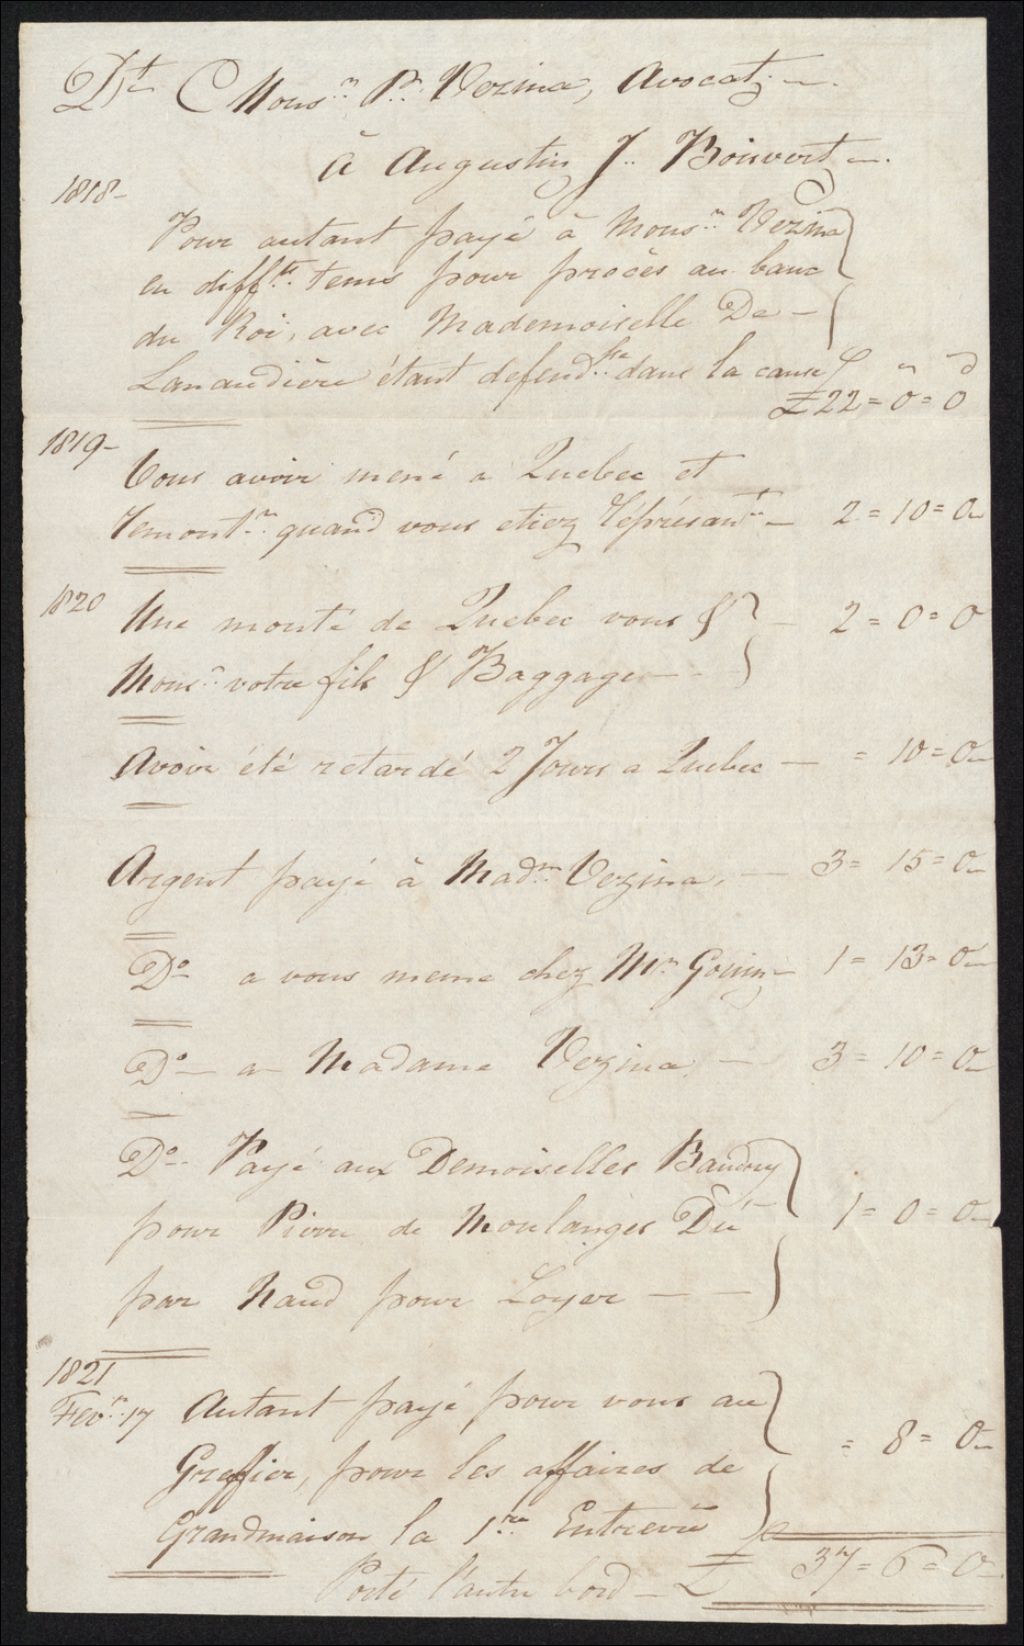 Dt Monsr Pre Vezina, Avocat —.
à Augustin J. Boisvert —.
1818 —
Pour autant payé à Monsr Vezina
en difftts tems pour procès au banc
du Roi, avec Mademoiselle De —
Lanaudière étant defendsse dans la cause
£ 22 = 0 = 0
1819 —
Vous avoir mené a Quebec et
remontr quand vous etiez réprésant — 2 = 10 = 0
1820
Une monté de Quebec vous & — 2 = 0 = 0
Monsr votre fils & Baggage —
Avoir été retardé 2 Jours a Quebec — = 10 = 0
Argent payé à Madm Vezina, — 3 = 15 = 0
Do a vous meme chez Mr Gouin — 1 = 13 = 0
Do — a Madame Vezina — 3 = 10 = 0
Do Payé aux Demoiselles Baudry
pour Pierre de Moulanges Dû 1 = 0 = 0
par Naud pour Loyer — —
1821
Fevr 17 Autant payé pour vous au
Greffier, pour les affaires de = 8 = 0
Grandmaison la 1re Entrevue
Porté l'autre bord — £ 37 = 6 = 0